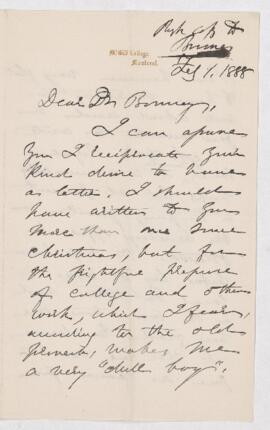 McGill College,
Montreal.
Feby 1, 1888
Dear Dr Bonney,
I can assure
you I reciprocate your
kind desire to have
a letter. I should
have written to you
more than once since
Christmas, but for
the frightful pressure
of college and other
work, which I fear,
according to the old
proverb, makes me
a very "dull boy".